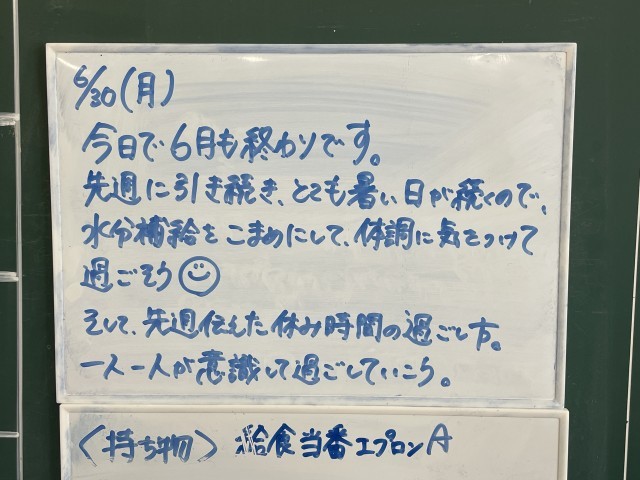 6/30(月)
今日で6月も終わりです。
先週に引き続き、とても暑い日が続くので、
水分補給をこまめにして、体調に気をつけて
過ごそう
そして、先週伝えた休み時間の過ごし方。
一人一人が意識して過ごしていこう。
〈持ち物〉 給食当番エプロンA